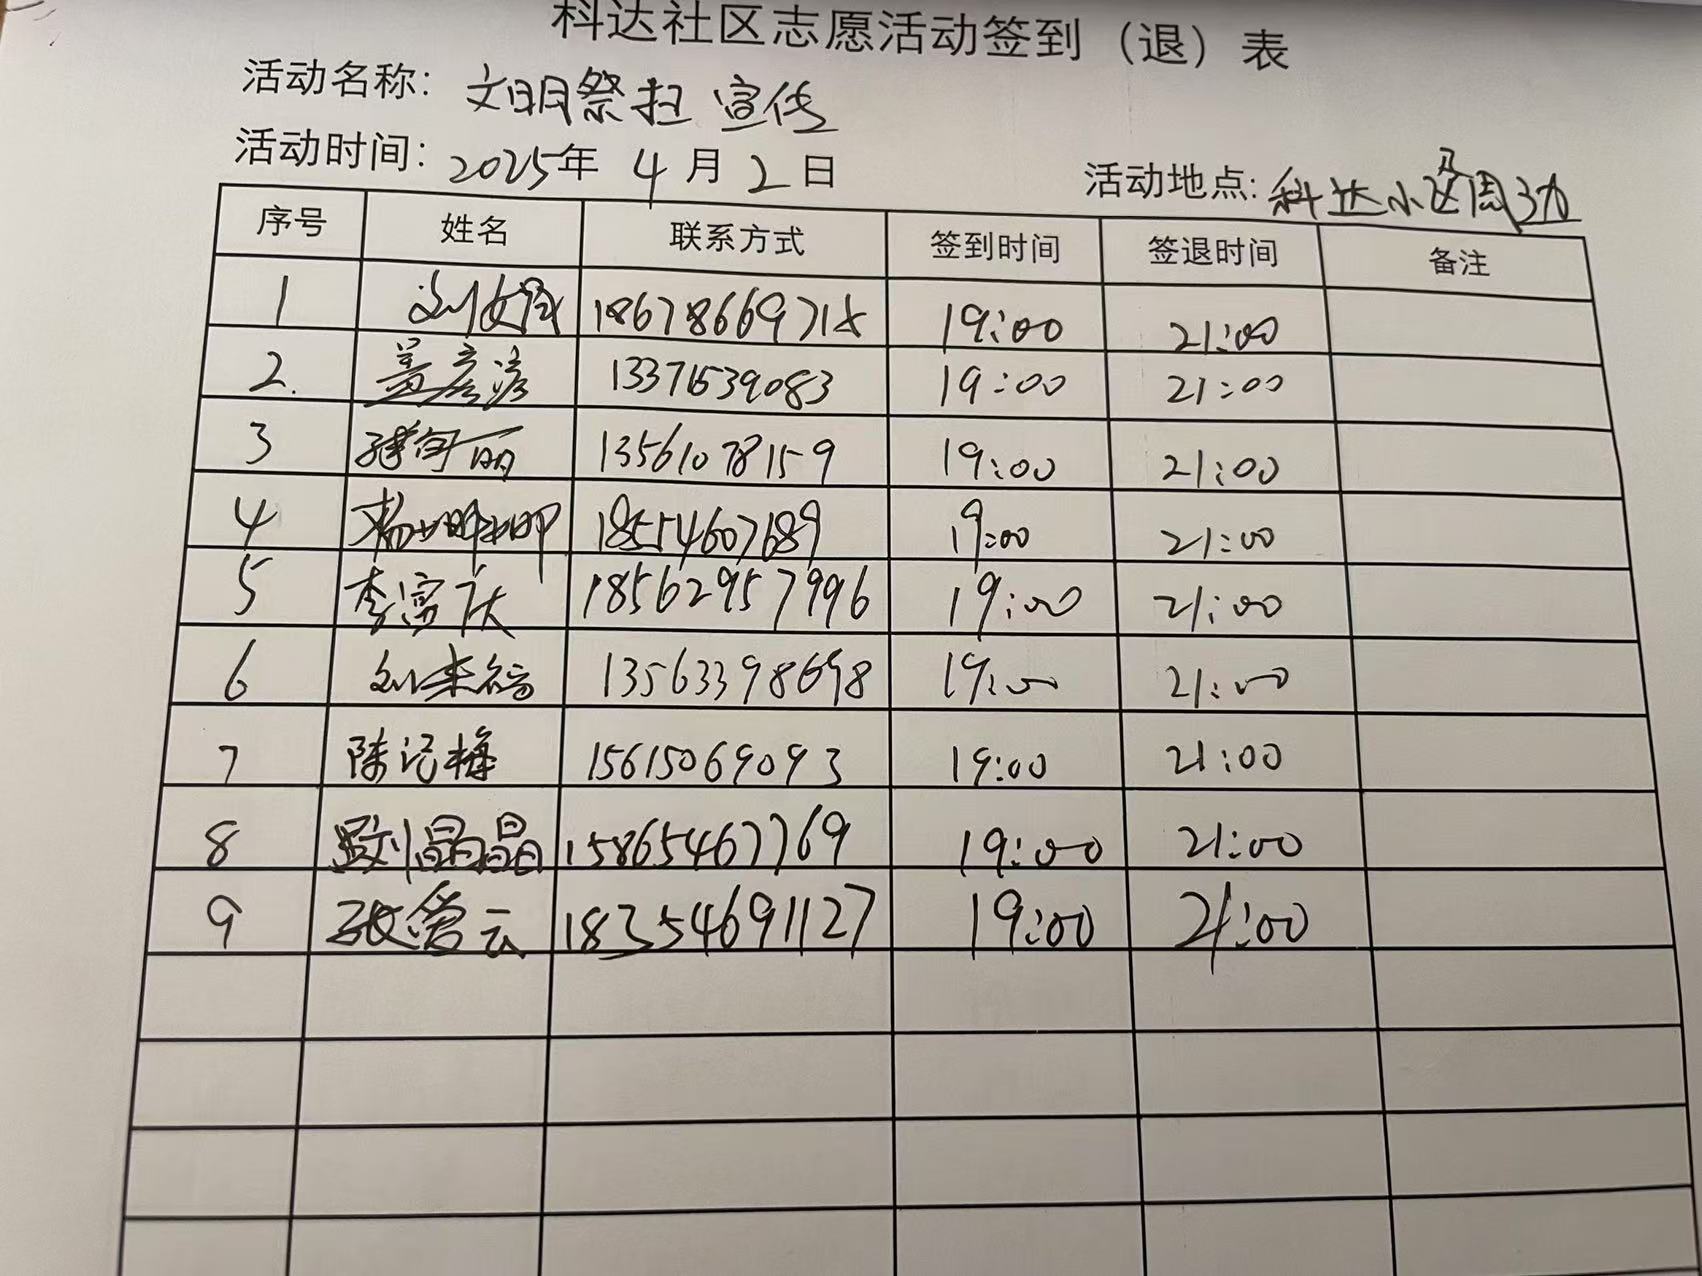 科达社区志愿活动签到（退）表
活动名称：文明祭扫 宣传
活动时间：2025年 4 月 2 日 活动地点：科达小区周边
序号 姓名 联系方式 签到时间 签退时间 备注
1 186786697 19:00 21:00
2. 13371539083 19:00 21:00
3 13561078159 19:00 21:00
4 18554607689 19:00 21:00
5 李富庆 18562957996 19:00 21:00
6 13563398698 19:00 21:00
7 陈记梅 15615069093 19:00 21:00
8 刘晶晶 15865467769 19:00 21:00
9 张爱云 18354691127 19:00 21:00